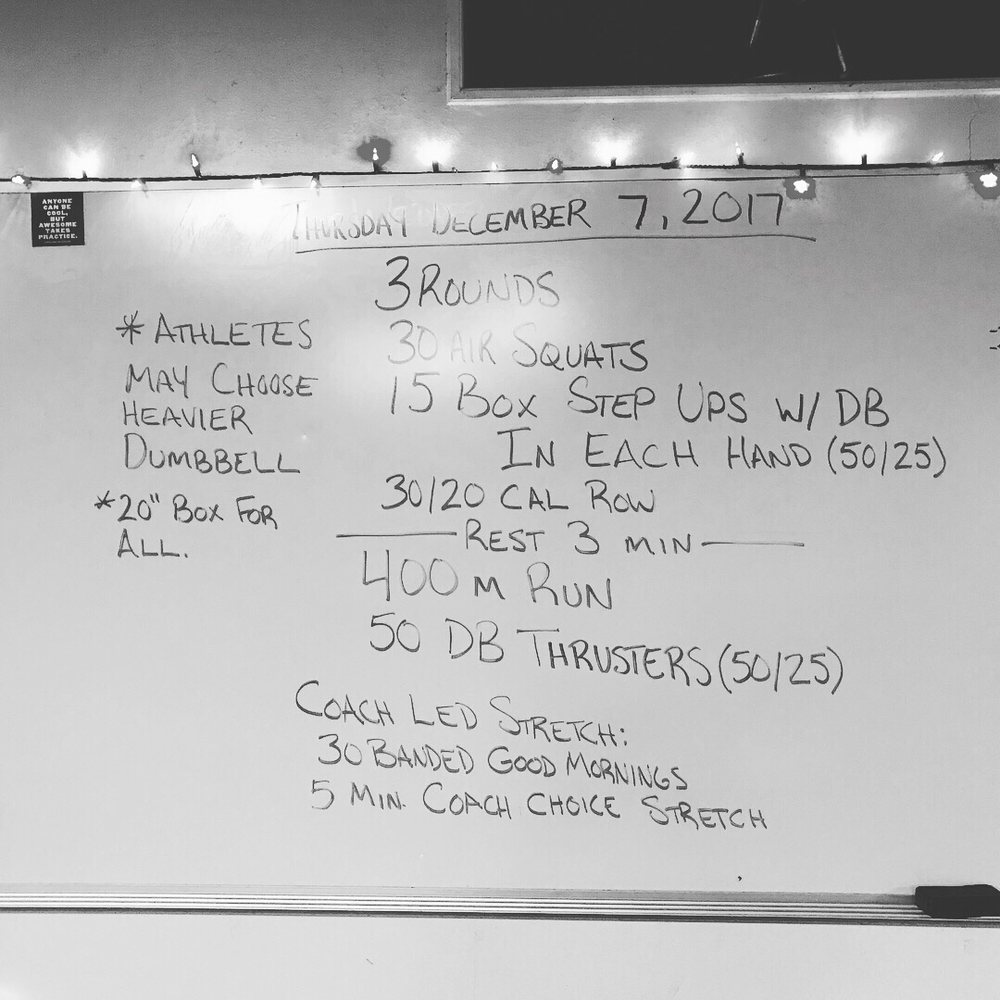 ANYONE
CAN BE
COOL,
BUT
AWESOME
TAKES
PRACTICE.
THURSDAY DECEMBER 7, 2017
3 ROUNDS
30 AIR SQUATS
15 BOX STEP UPS W/ DB
IN EACH HAND (50/25)
30/20 CAL ROW
REST 3 MIN
400 M RUN
50 DB THRUSTERS (50/25)
COACH LED STRETCH:
30 BANDED GOOD MORNINGS
5 MIN. COACH CHOICE STRETCH
* ATHLETES
MAY CHOOSE
HEAVIER
DUMBBELL
* 20" BOX FOR
ALL.